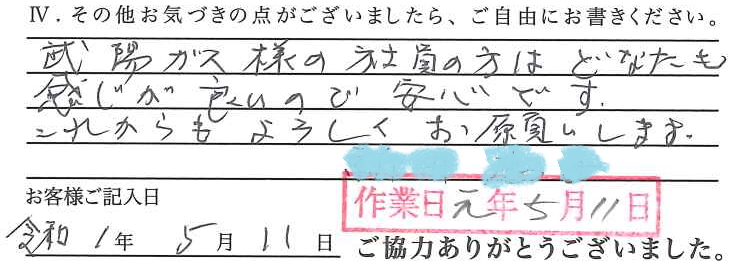 Ⅳ．その他お気づきの点がございましたら、ご自由にお書きください。
武陽ガス様の社員の方はどなたも
感じが良いので安心です.
これからもよろしくお願いします.
お客様ご記入日
作業日元年5月11日
令和1年5月11日 ご協力ありがとうございました。